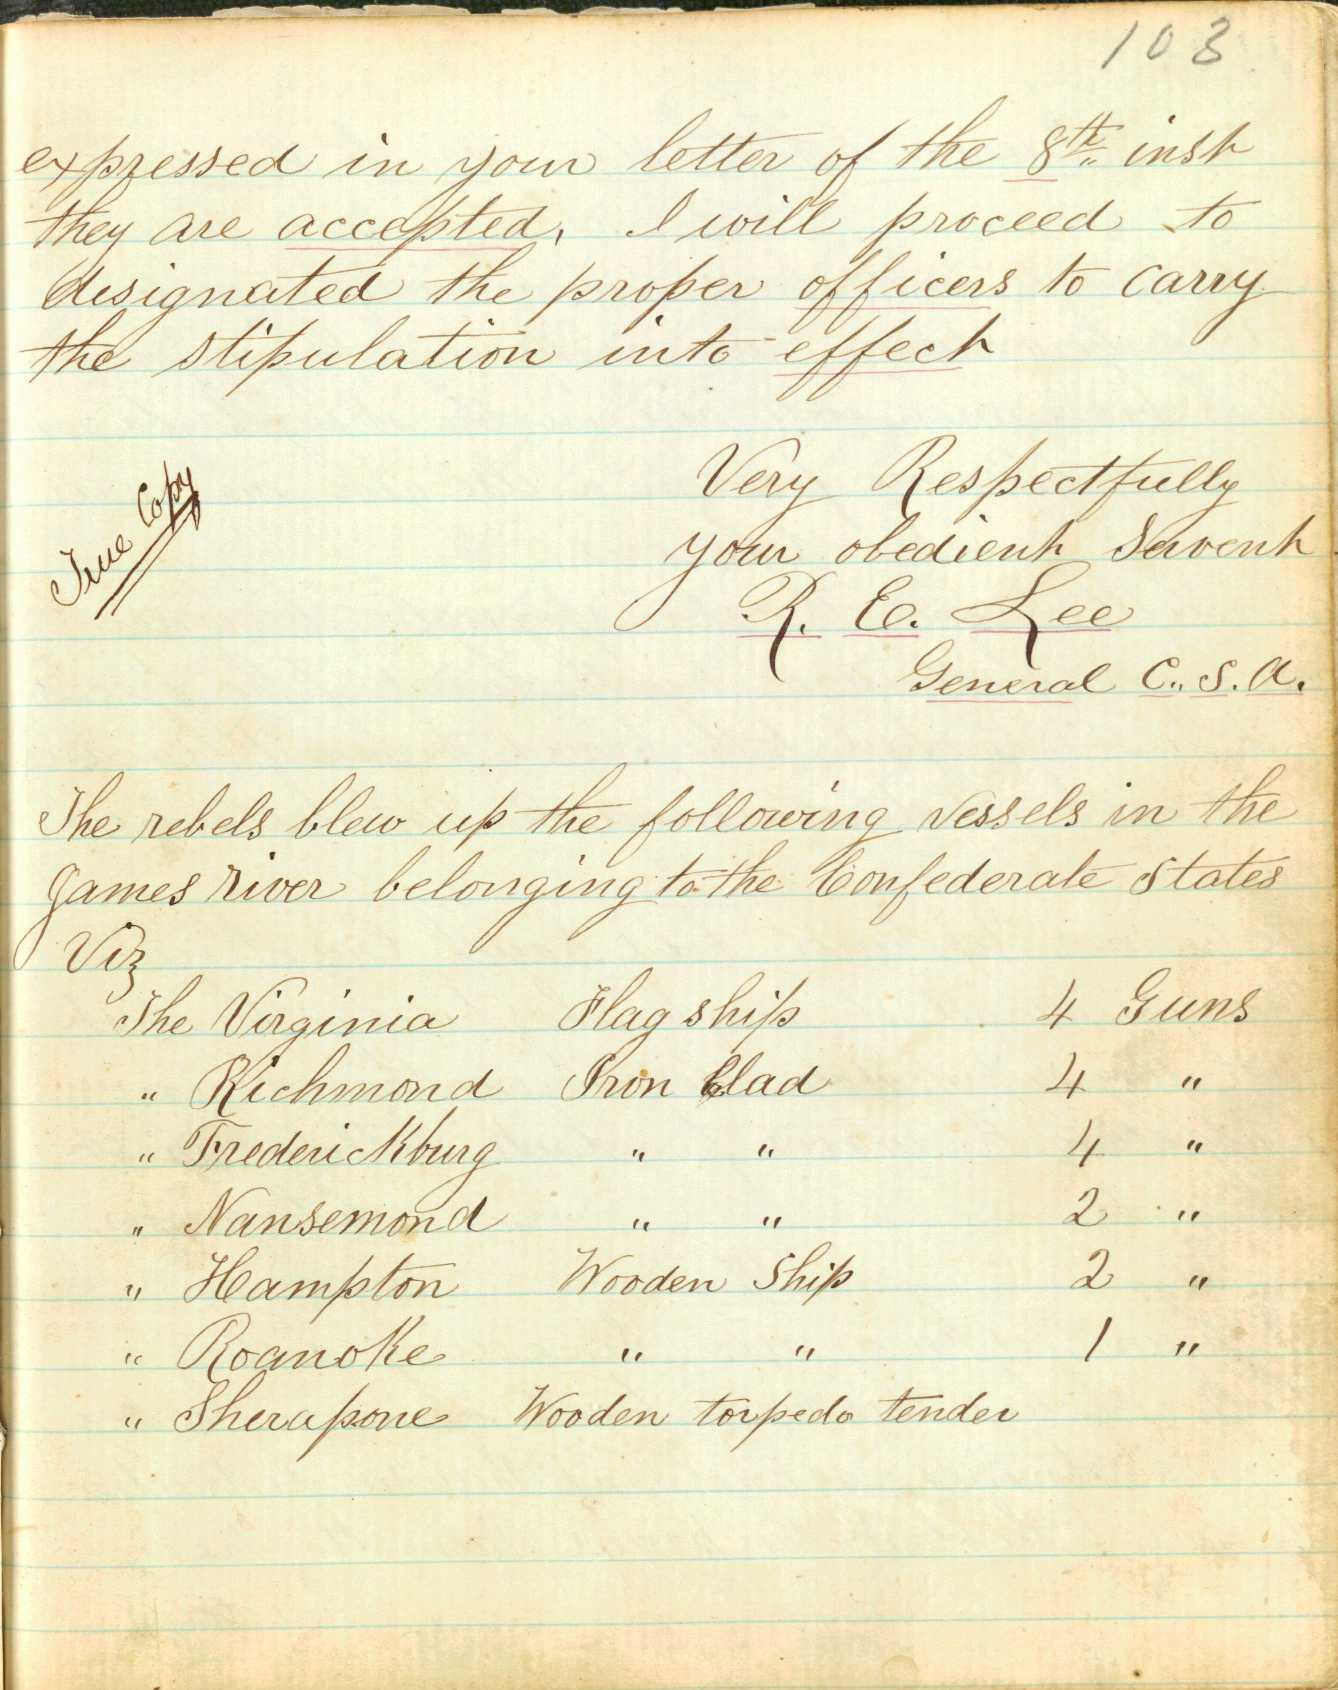 103
expressed in your letter of the 8th inst
they are accepted, I will proceed to
designated the proper officers to carry
the stipulation into effect
Very Respectfully
True Copy
your obedient Servent
R. E. Lee
General C.. S. A.
The rebels blew up the following vessels in the
James River belonging to the Confederate States
Viz
The Virginia Flag ship 4 Guns
" Richmond Iron Clad 4 "
" Frederickburg " " 4 "
" Nansemond " " 2 "
" Hampton Wooden Ship 2 "
" Roanoke " " 1 "
" Sherapone Wooden torpedo tender